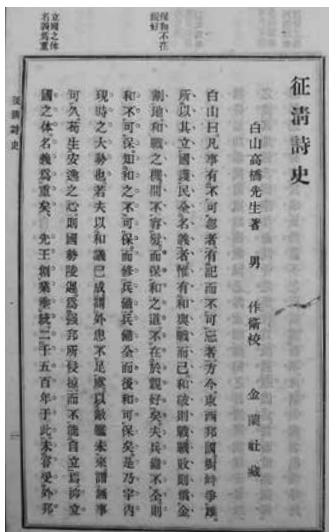 保和不在
親好
立國之体
名義爲重
征清詩史
白山高橋先生著 男 作衛校 金蘭社藏
白山曰凡事有不可忽者有記而不可忘者方今東西邦國對峙爭雄
所以其立國護民全名義者惟有和與戰而已和破則戰戰敗則償金
割地和戰之機間不容髮而保和之道不在於親好矣夫兵備不全則
和不可保知和之不可保而修兵備兵備全而後和可保矣是乃宇內
現時之大勢也若夫以和議已成謂外患不足慮以敵艦未來謂無事
可久苟生安逸之心則國勢陵遲爲强邦所侵掠而不能自立焉淬立
國之体名義爲重矣 先王創業垂統二千五百年于此未嘗受外邦
征清詩史
一